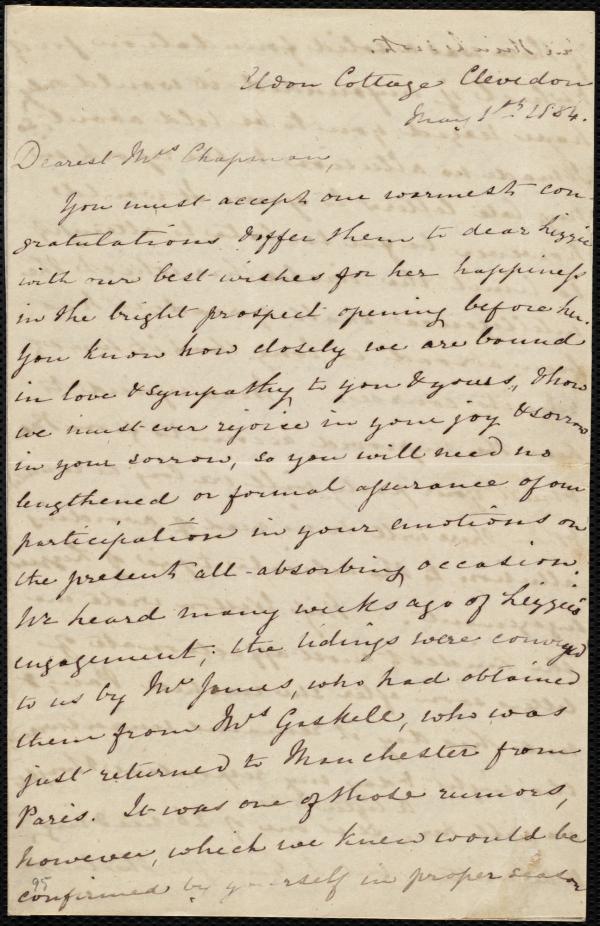 Udon Cottage Clevedon
May 1st 1854.
Dearest Mrs Chapman,
You must accept our warmest con-
gratulations & offer them to dear Lizzie
with our best wishes for her happiness
in the bright prospect opening before her.
You know how closely we are bound
in love & sympathy to you & yours, & how
we must ever rejoice in your joy & sorrow
in your sorrow, so you will need no
lengthened or formal assurance of our
participation in your emotions on
the present all-absorbing occasion.
We heard many weeks ago of Lizzie's
engagement; the tidings were conveyed
to us by Mr James, who had obtained
them from Mrs Gaskell, who was
just returned to Manchester from
Paris. It was one of those rumors,
however, which we knew would be
confirmed by yourself in proper season
95